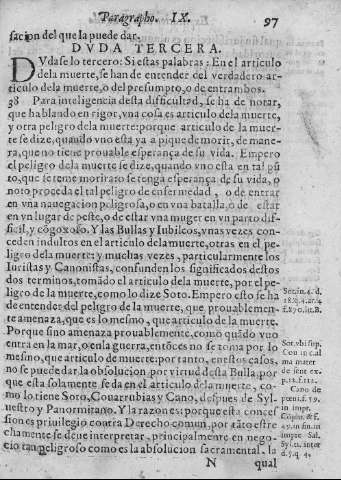 Paragrapho. IX. 97
sacion del que la puede dar.
DVDA TERCERA.
DVdase lo tercero: Si estas palabras: En el articulo
dela muerte, se han de entender del verdadero ar-
ticulo dela muerte, o del presumpto, o de entrambos.
38 Para inteligencia desta dificultad, se ha de notar,
que hablando en rigor, vna cosa es articulo dela muerte,
y otra peligro dela muerte: porque articulo de la muer-
te se dize, quando vno esta ya a pique de morir, de mane-
ra, que no tiene prouable esperança de su vida. Empero
el peligro dela muerte se dize, quando vno esta en tal pũ
to, que se teme morira: o se tenga esperança de su vida, o
no: o proceda el tal peligro de enfermedad, o de entrar
en vna nauegacion peligrosa, o en vna batalla, o de estar
en vn lugar de peste, o de estar vna muger en vn parto dif-
ficil, y cõgoxoso. Y las Bullas y Iubileos, vnas vezes con-
ceden indultos en el articulo dela muerte, otras en el pe-
ligro dela muerte: y muchas vezes, particularmente los
Iuristas y Canonistas, confunden los significados destos
dos terminos, tomãdo el articulo dela muerte, por el pe-
ligro de la muerte, como lo dize Soto. Empero esto se ha
de entender del peligro de la muerte, que prouablemen-
te amenaza, que es lo mesmo, que articulo de la muerte.
Porque si no amenaza prouablemente, como quãdo vno
entra en la mar, o en la guerra, entõces no se toma por lo
mesmo, que articulo de muerte: por tanto, en estos casos,
no se puede dar la absolucion por virtud desta Bulla, por
que esta solamente se da en el articulo dela muerte, co-
mo lo tiene Soto, Couarrubias y Cano, despues de Syl-
uestro y Panormitano. Y la razon es: porque esta conces
sion es priuilegio contra Derecho comun, por tãto estre
chamente se deue interpretar, principalmente en nego-
cio tan peligroso como es la absolucion sacramental, la
N qual
Sot. in 4. d.
Sot. vbi sup.
Cou. in c. al
ma mater
de sent ex
p. 1.
Cano de
pœni.
in impr.
in fin. in
impre Sal.
Syl.
d. 5. q. 4.